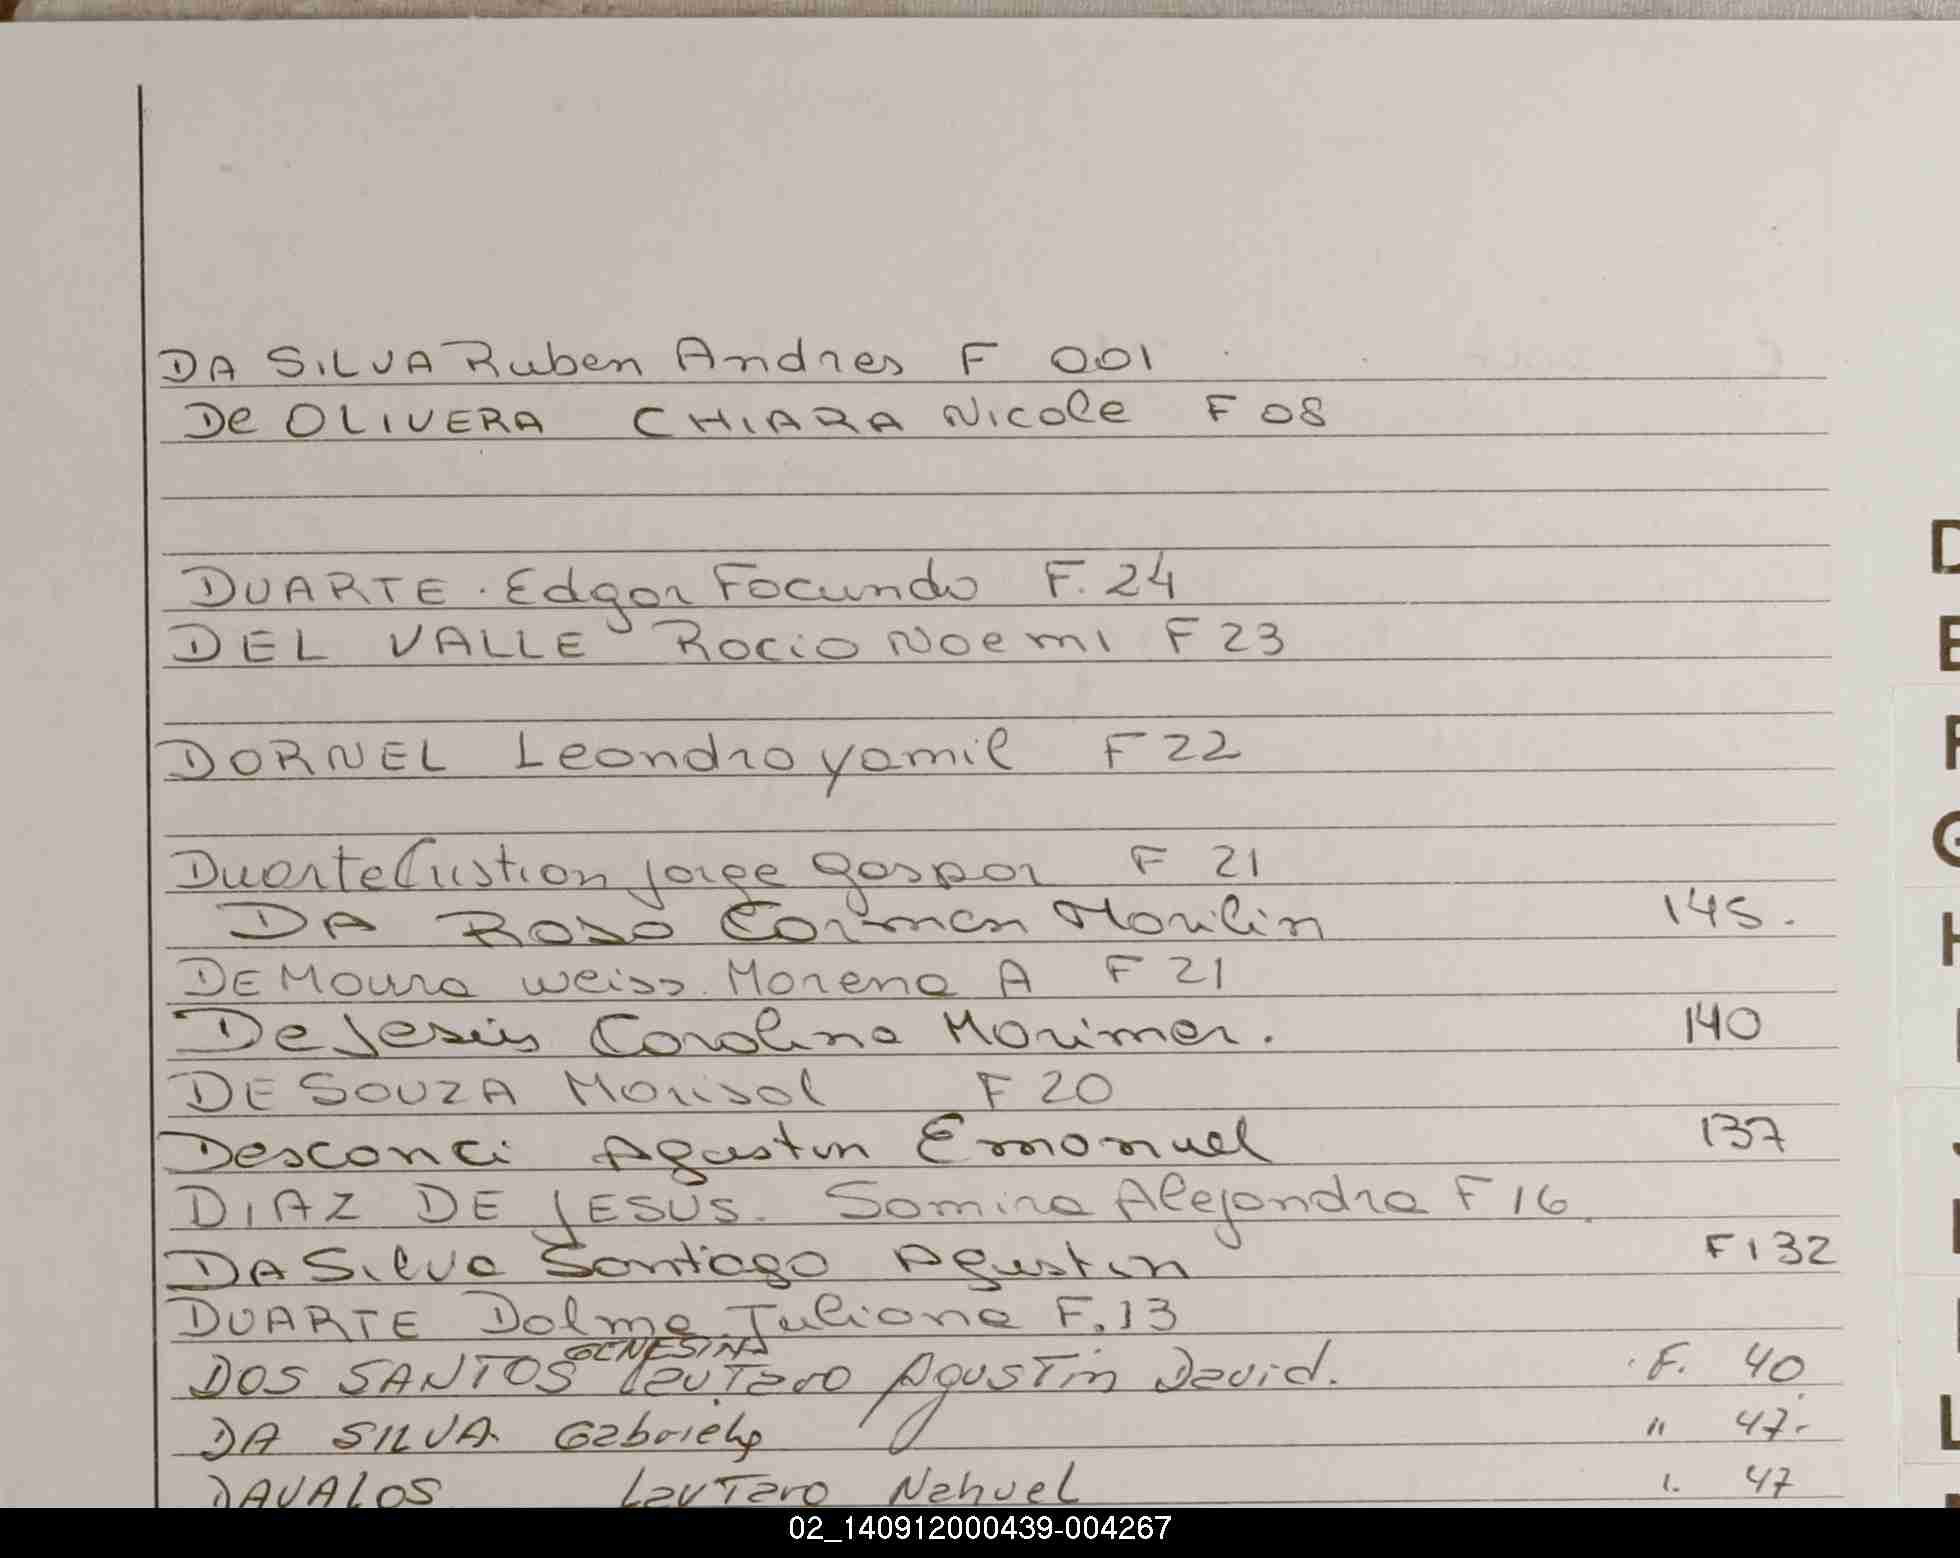 DA SILVA Ruben Andres F 001
De OLIVERA CHIARA Nicole F 08
DUARTE . Edgar Facundo F. 24
DEL VALLE Rocio Noemi F 23
DORNEL Leandro yamil F 22
Duarte Cristian jorge gaspar F 21
DA Rosa Carmen Marilin 145.
DE Moura weiss Morena A F 21
De Jesús Carolina Marimer. 140
DE SOUZA Marisol F 20
Desconci Agustin Emanuel 137
DIAZ DE JESUS. Samira Alejandra F 16.
DA Silva Santiago Agustin F 132
DUARTE Dalma Juliana F. 13
DOS SANTOS Lautaro Agustin David. F. 40
DA SILVA. Gabriela " 47.
DAVALOS Lautaro Nahuel 47
D
E
F
G
H
L
02_140912000439-004267